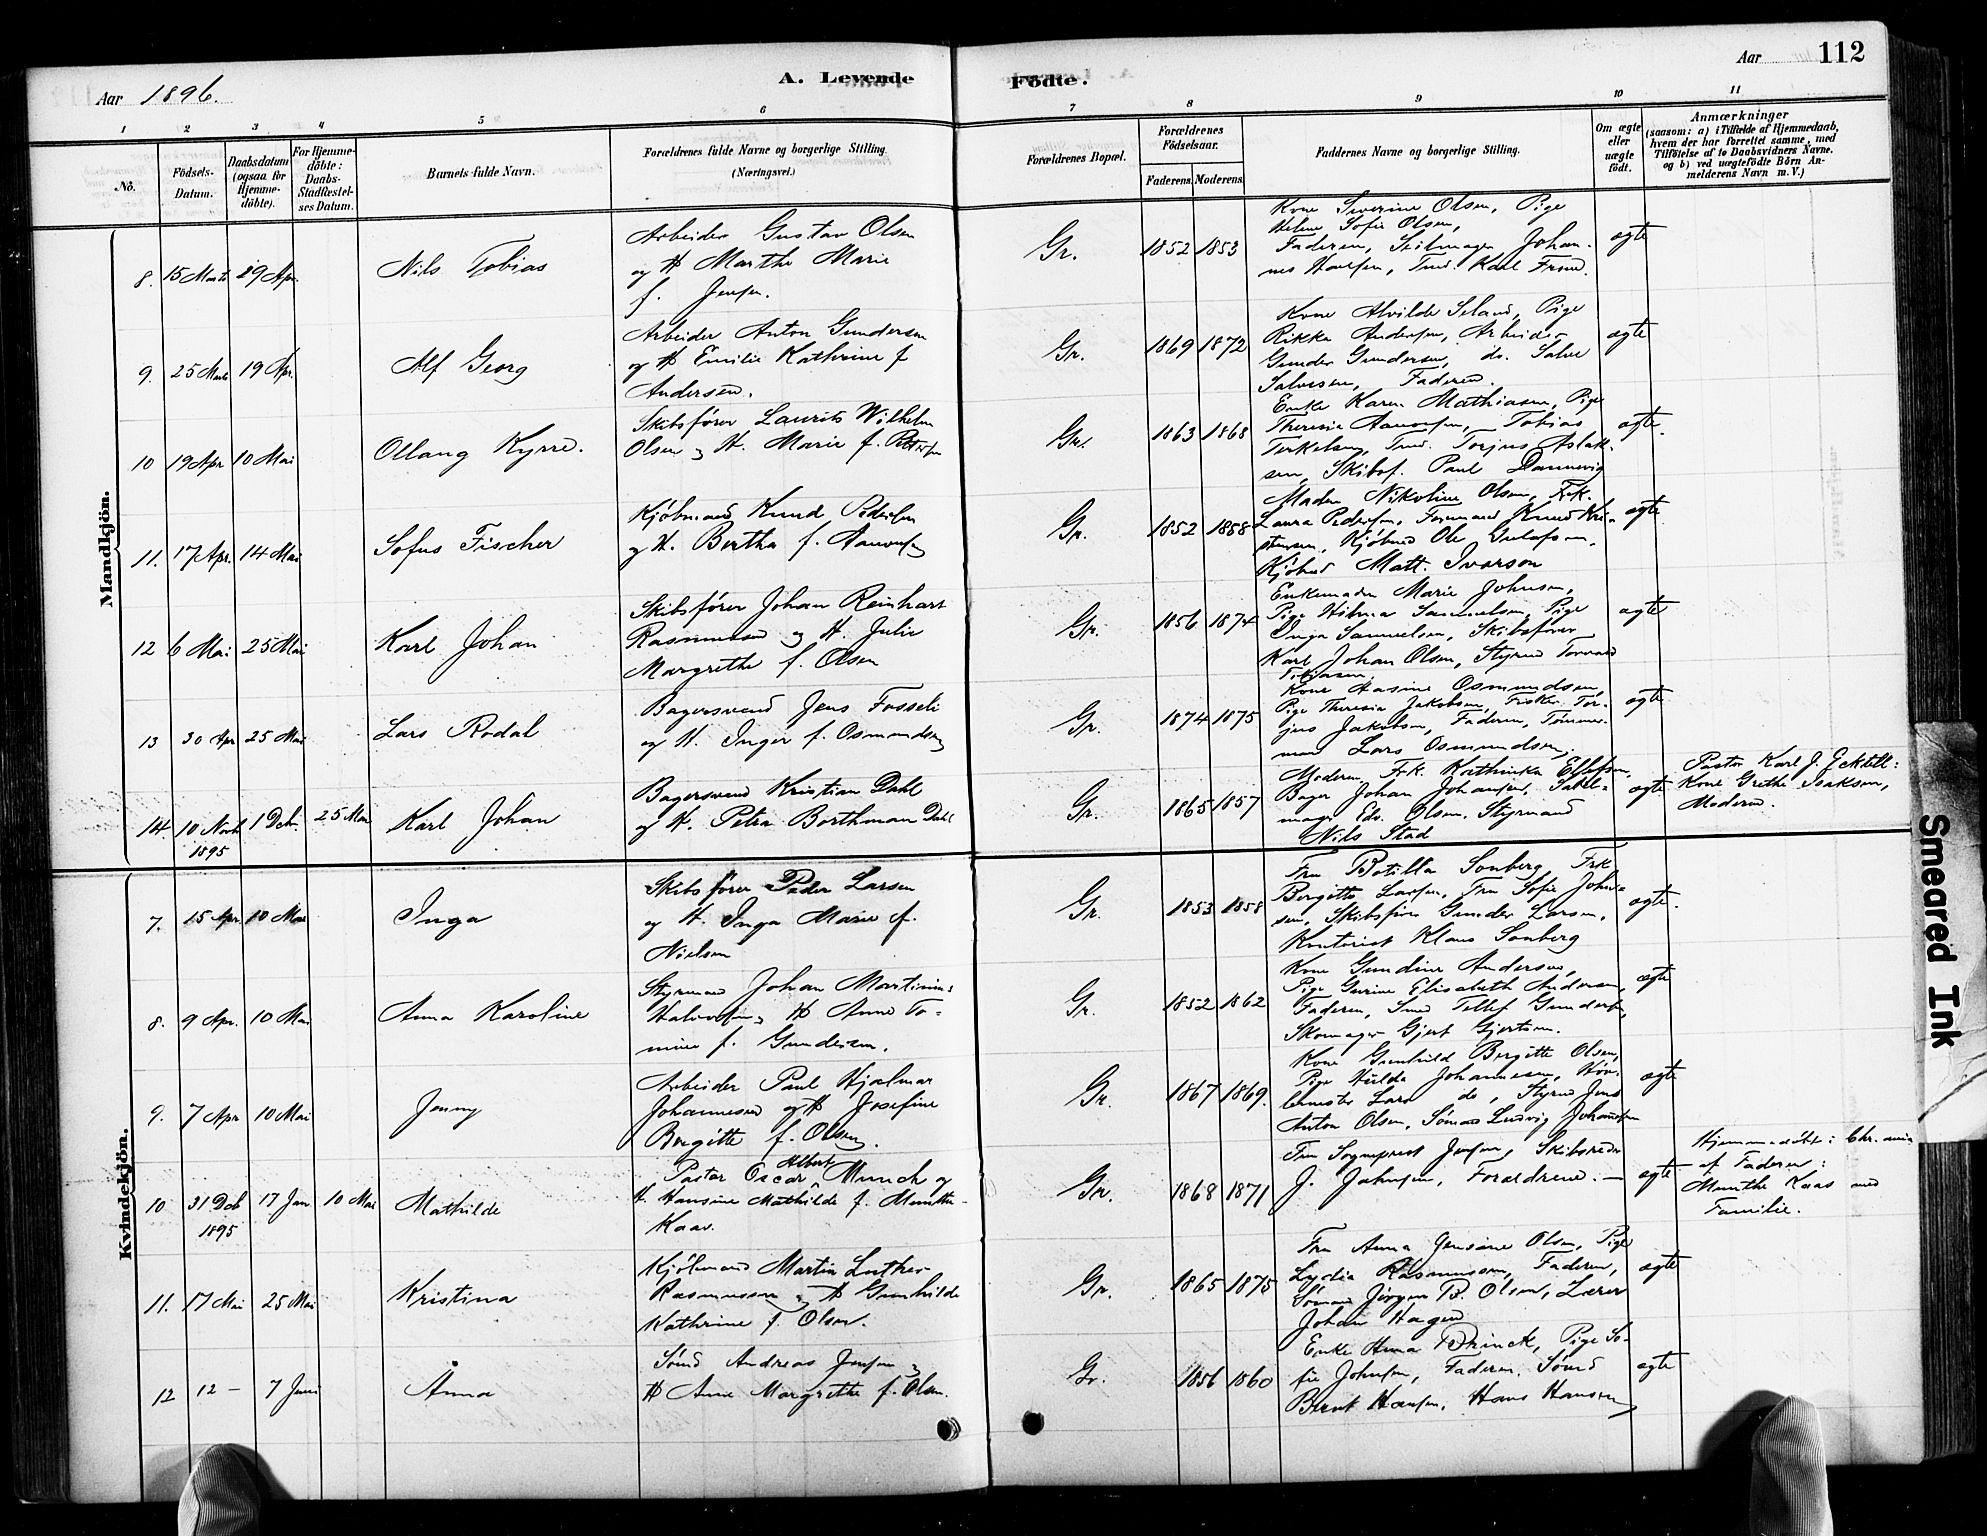 Aar 1896.
A. Levende
Födte.
Aar
112
1
2
3
4
5
6
7
8
9
10
11
No.
Födsels-
Datum.
Daabsdatum
(ogsaa for
Hjemme-
döbte).
For Hjemme-
döbte:
Daabs-
Stadfæstel-
ses Datum.
Barnets fulde Navn.
Forældrenes fulde Navne og borgerlige Stilling.
(Næringsvei.)
Forældrenes Bopæl.
Forældrenes
Födselsaar.
Faderens.
Moderens.
Faddernes Navne og borgerlige Stilling.
Om ægte
eller
uægte
födt.
Anmærkninger
(saasom: a) i Tilfælde af Hjemmedaab,
hvem der har forrettet samme, med
Tilföielse af to Daabsvidners Navne.
og b) ved uægtefödte Börn An-
melderens Navn m. V.)
Mandkjön.
8. 15 Marts 19 Apr.
Nils Tobias
Arbeider Gustav Olsen
og H. Marthe Marie
f. Jensen.
Gr. 1852 1853
Kone Severine Olsen, Pige
Helene Sofie Olsen,
Faderen, Johan-
nes Tmd. Karl
ægte
9. 25 Marts 19 Apr.
Alf Georg
Arbeider Anton Gundersen
og H. Emilie Kathrine f
Andersen.
Gr. 1869 1872
Kone Alvilde Seland, Pige
Rikka Andersen, Arbeider
Gunder Gundersen, do. Salve
Salvesen, Faderen.
ægte
10 19 Apr 10 Mai
Ollang Kyrre.
Skibsfører Laurits Wilhelm
Olsen og H. Marie f.
Gr. 1863 1868
Enke Karen Mathiasen, Pige
Theresia Tobias
Terkelsen, Tmd. Torjus Aslak-
sen, Skibsf. Paul Dannevig
ægte.
11. 17 Apr. 14 Mai
Sofus Fischer
Kjøbmand Knud Pedersen
og H. Bertha f.
Gr. 1852 1858
Madm Nikoline Olsen, Frk.
Laura Pedersen, Knud Kri-
stensen, Kjøbmd Ole
Kjøbmd Matt. Ivarson
ægte
12 6 Mai 25 Mai
Karl Johan
Skibsfører Johan Reinhart
Rasmussen og H. Julie
Margrethe f. Olsen
Gr. 1856 1874
Enkemadm Marie Johnsen,
Pige Hilma Samuelsen, Pige
Inga Samuelsen, Skibsfører
Karl Johan Olsen, Styrmd
Tobiasen.
ægte
13 30 Apr 25 Mai
Lars Rodal
Bagersvend Jens Fosseli
og H. Inger f. Osmundsen
Gr. 1874 1875
Kone Hasine Osmundsen,
Pige Theresia Jakobsen, Fisker Tor-
jus Jakobsen, Faderen, Tømmer-
mand Lars Osmundsen.
ægte
14 10 Novb 1 Dec. 25 Mai
1895
Karl Johan
Bagersvend Kristian Dahl
og H. Petra Borthman Dahl
Gr. 1865 1857
Moderen, Frk. Kathinka Ellefsen,
Bager Johan Johansen,
mager Edv. Olsen, Styrmand
Nils Stad
ægte
Pastor Karl J.
Kone Grethe Isaksen,
Moderen.
Kvindekjön.
7. 15 Apr. 10 Mai
Inga
Skibsfører Peder Larsen
og H. Inga Marie f.
Nielsen
Gr. 1853 1858
Fru Botilla Sonberg Frk
Bergitte Larsen, Fru Sofie John-
sen, Skibsfører Gunder Larsen,
Kontorist Klaus Sonberg
ægte.
8. 9 Apr. 10 Mai
Anna Karoline
Styrmand Johan Martinius
Halvorsen og H. Anne To-
mine f. Gundersen.
Gr. 1852 1862
Kone Gundine Andersen,
Pige Gurine Elisabeth Andersen,
Faderen, Smed Tellef Gundersen,
Skomager Gjert Gjertsen.
ægte
9. 7 Apr 10 Mai
Jenny
Arbeider Paul Hjalmar
Johannesen og H. Josefine
Bergitte f. Olsen.
Gr. 1867 1869.
Kone Gunhild Bergitte Olsen,
Pige Hulda Johannesen, Høv-
lemester Lars do, Styrmd Jens
Anton Olsen, Sømand Ludvig Johannesen
ægte
10 31 Dcb 17 Jan 10 Mai
1895
Mathilde
Pastor Oscar Albert Munch og
H. Hansine Mathilde f. Munthe-
Kaas.
Gr. 1868 1871
Fru Sogneprest Jensen, Skibsreder
J. Johnsen, Forældrene. —
ægte
Hjemmedøbt: Chr.ania
af Faderen:
Munthe Kaas med
Familie.
11. 17 Mai 25 Mai
Kristina
Kjøbmand Martin Luther
Rasmussen og H. Gunhilde
Kathrine f. Olsen.
Gr. 1865 1875
Fru Anna Jensine Olsen, Pige
Lydia Rasmussen, Faderen,
Sømand Jørgen B. Olsen, Lærer
Johan Hagen
ægte
12 12 — 7 Juni
Anna
Sømd Andreas Jensen og
H. Anne Margrethe f. Olsen.
Gr. 1856 1860
Enke Anna Brinck, Pige So-
fie Johnsen, Faderen, Sømd
Bernt Hansen, Hans Hansen
ægte
Smeared Ink